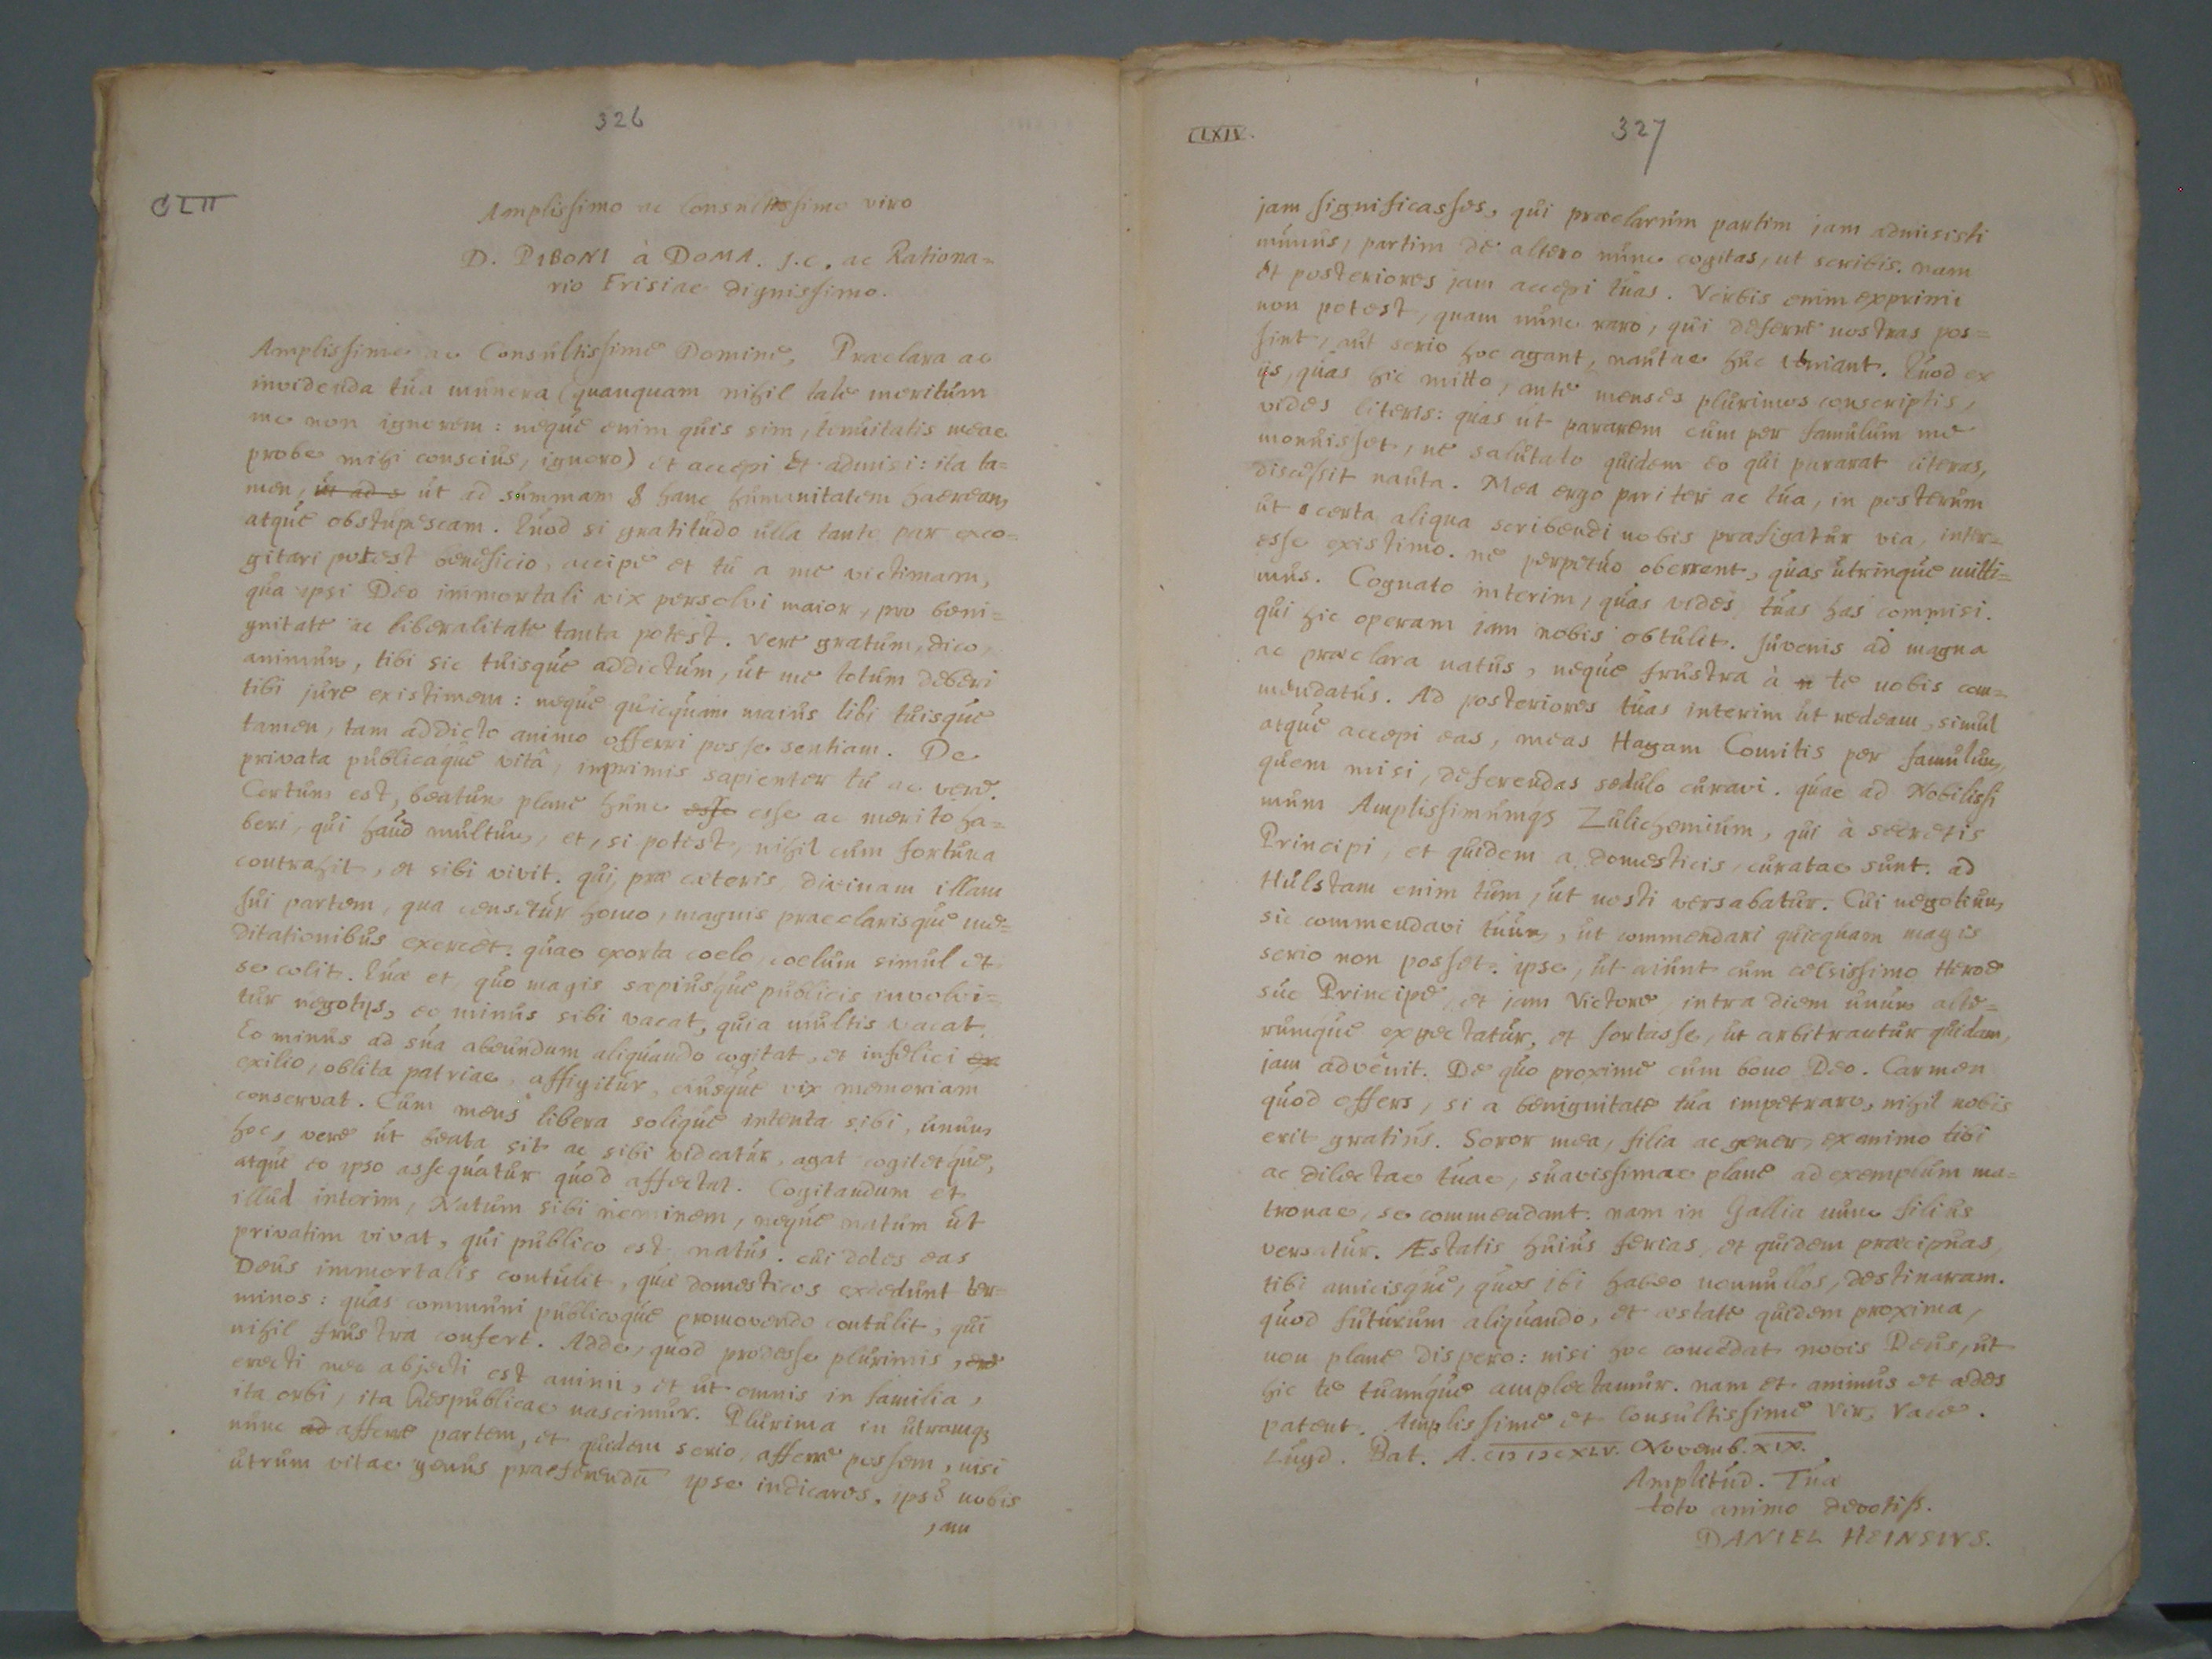 326
CLII
Amplissimo ac Consultissimo viro
D. PIBONI à DOMA. J.C. ac Rationa=
rio Frisiae dignissimo.
Amplissime ac Consultissime Domine, Praeclara ac
invidenda tua munera (quanquam nihil tale meritum
me non ignorem: neque enim quis sim, tenuitatis meae
probe mihi conscius, ignoro) et accepi et admisi: ita ta=
men, ut ad s ut ad summam hanc humanitatem haeream,
atque obstupescam. Quod si gratitudo ulla tanto par exco=
gitari potest beneficio, accipe et tu a me victimam,
qua ipsi Deo immortali vix persolvi maior, pro beni=
gnitate ac liberalitate tanta potest. vere gratum, dico,
animum, tibi sic tuisque addictum, ut me totum deberi
tibi jure existimem: neque quicquam maius tibi tuisque
tamen, tam addicto animo offerri posse sentiam. De
privata publicaque vitâ, inprimis sapienter tu ac vere.
Certum est, beatum plane hunc esse esse ac merito ha=
beri, qui haud multum, et, si potest, nihil cum fortuna
contrahit, et sibi vivit. qui, prae ceteris, divinam illam
sui partem, qua censetur homo, magnis praeclarisque me=
ditationibus exercet: quae exorta coelo, coelum simul et
se colit. Quae et, quo magis saepiusque publicis involvi=
tur negotijs, eo minus sibi vacat, quia multis vacat.
Eo minus ad sua abeundum aliquando cogitat, et infelici ex
exilio, oblita patriae, affigitur, eiusque vix memoriam
conservat. Cum mens libera solique intenta sibi, unum
hoc, vere ut beata sit ac sibi videatur, agat cogitetque,
atque eo ipso assequatur quod affectat. Cogitandum et
illud interim, Natum sibi neminem, neque natum ut
privatim vivat, qui publico est natus: cui dotes eas
Deus immortalis contulit, quae domesticos excedunt ter=
minos: quas communi publicoque promovendo contulit, qui
nihil frustra confert. Adde, quod prodesse plurimis,
erecti nec abjecti est animi, et ut omnis in familia,
ita orbi, ita Respublicae nascimur. Plurima in utramq;
nunc ad afferre partem, et quidem serio, afferre possem, nisi
utrum vitae genus praeferendū ipse indicares, ipse nobis
jam
CLXIV.
327
jam significasses, qui praeclarum partim jam admisisti
munus, partim de altero nunc cogitas, ut scribis. nam
et posteriores jam accepi tuas. Verbis enim exprimi
non potest, quam nunc raro, qui deferre nostras pos=
sint, aut serio hoc agant, nautae huc veniant. Quod ex
ijs, quas hic mitto, ante menses plurimos conscriptis,
vides literis: quas ut pararem cum per famulum me
monuisset, ne salutato quidem eo qui pararat literas,
discessit nauta. Mea ergo pariter ac tua, in posterum
ut certa aliqua scribendi nobis prafigatur via, inter=
esse existimo. ne perpetuo oberrent, quas utrinque mitti=
mus. Cognato interim, quas vides, tuas has commisi.
qui hic operam jam nobis obtulit. Juvenis ad magna
ac praeclara natus, neque frustra à te nobis com=
mendatus. Ad posteriores tuas interim ut redeam, simul
atque accepi eas, meas Hagam Comitis per famulum,
quem misi, deferendas sedulo curavi. quae ad Nobilissi
mum Amplissimumq; Zulichemium, qui à secretis
Principi, et quidem a domesticis, curatae sunt. ad
Hulstam enim tum, ut nosti versabatur. Cui negotium
sic commendavi tuum, ut commendari quicquam magis
serio non posset. ipse, ut aiunt cum celsissimo Heroe
suo Principe, et jam Victore, intra diem unum alte=
rumque expectatur, et fortasse, ut arbitrantur quidam,
jam advênit. De quo proxime cum bono Deo. Carmen
quod offers, si a benignitate tua impetraro, nihil nobis
erit gratius. Soror mea, filia ac gener, ex animo tibi
ac dilectae tuae, suavissimae plane ad exemplum ma=
tronae, se commendant. nam in Gallia nunc filius
versatur. Æstatis huius ferias, et quidem praecipuas,
tibi amicisque, quos ibi habeo nonnullos, destinaram.
quod futurum aliquando, et aestate quidem proxima,
non plane dispero: nisi hoc concedat nobis Deus, ut
hic te tuamque amplectamur. nam et animus et aedes
patent. Amplissime et Consultissime Vir, Vale.
Lugd. Bat. A. CIƆ IƆC XLV. Novemb. XIX.
Amplitud. Tuae
toto animo devotiss.
DANIEL HEINSIVS.